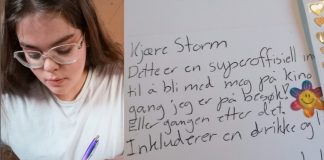 Kjære Storm
Dette er en superoffisiell in
til å bli med meg på kino
gang jeg er på besøk!
Eller gangen etter det.
Inkluderer en drikke og